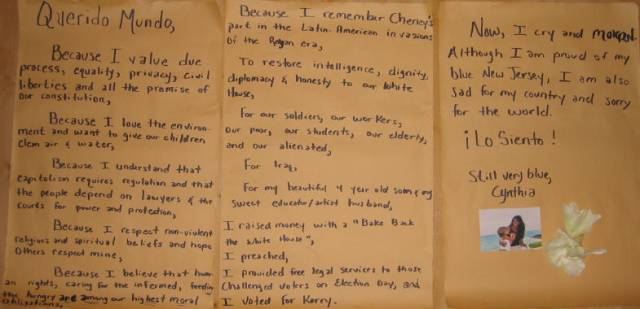 Querido Mundo,
Because I value due
process, equality, privacy, civil
liberties and all the promise of
our constitution,
Because I love the environ-
ment and want to give our children
clean air & water,
Because I understand that
capitalism requires regulation and that
the people depend on lawyers & the
courts for power and protection,
Because I respect non-violent
religions and spiritual beliefs and hope
others respect mine,
Because I believe that hum-
an rights, caring for the infermed, feeding
the hungry are among our highest moral
obligations,
Because I remember Cheney's
part in the Latin American invasions
of the Reagan era,
To restore intelligence, dignity,
diplomacy & honesty to our White
House,
For our soldiers, our workers,
Our poor, our students, our elderly,
and our alienated,
For Iraq,
For my beautiful 4 year old son & my
sweet educator/artist husband,
I raised money with a "Bake Back
the White House",
I preached,
I provided free legal services to those
challenged voters on Election Day, and
I voted for Kerry.
Now, I cry and
Although I am proud of my
blue New Jersey, I am also
sad for my country and sorry
for the world.
¡Lo Siento!
Still very blue,
Cynthia